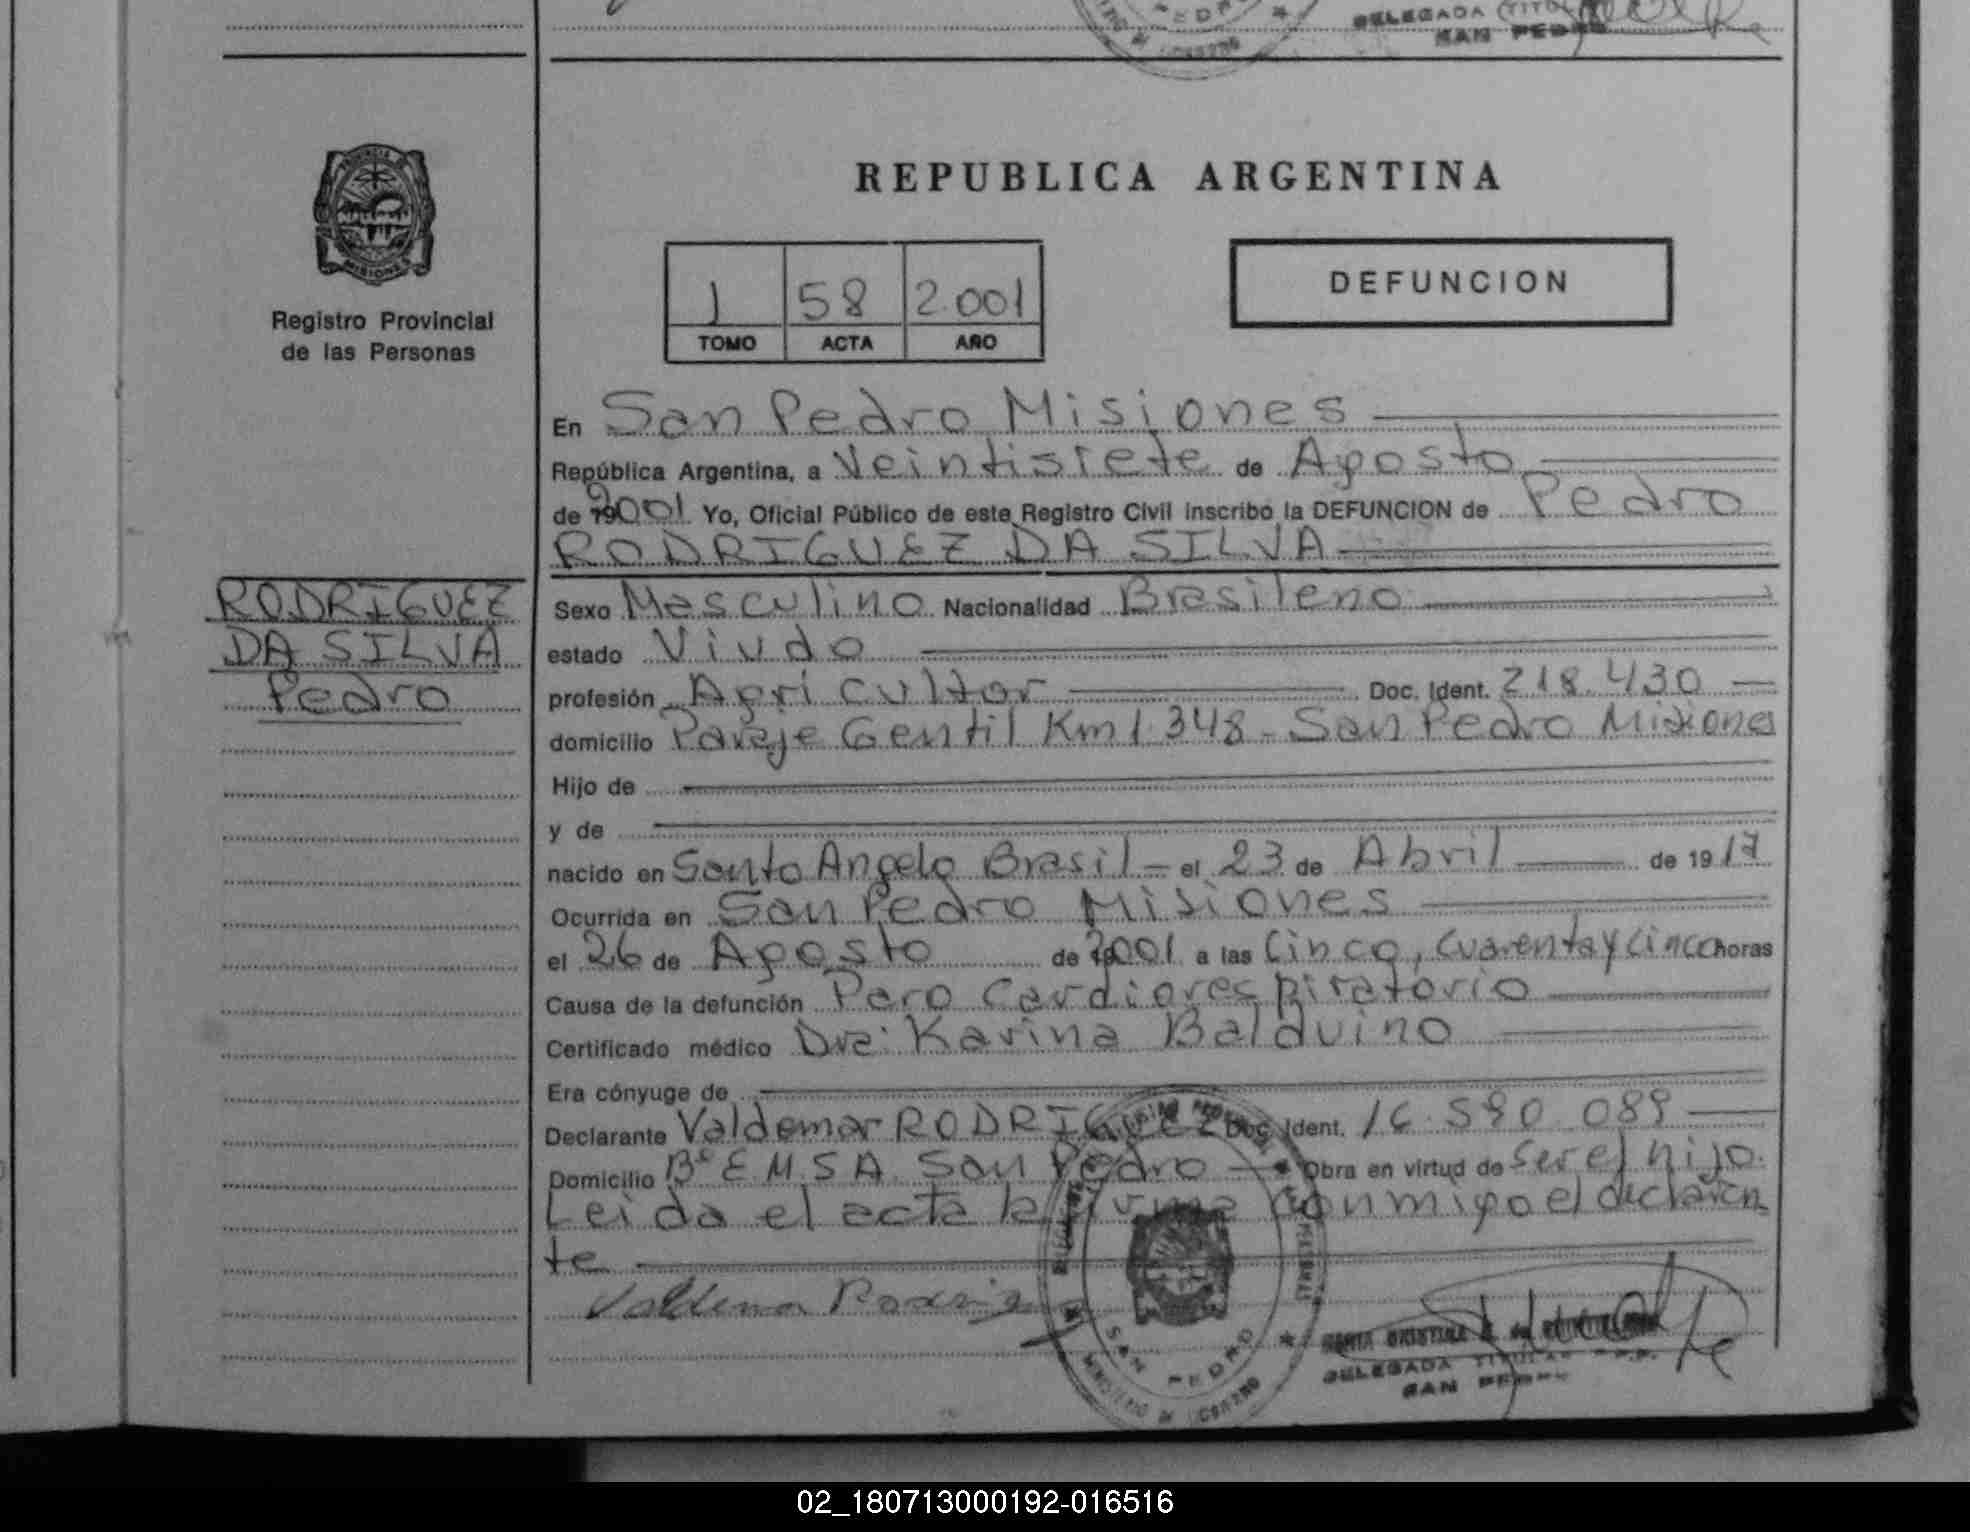 DELEGADA TITU
SAN PEDRO
PROVINCIA DE
MISIONES
Registro Provincial
de las Personas
REPUBLICA ARGENTINA
1 58 2.001
TOMO ACTA AÑO
DEFUNCION
En San Pedro Misiones
República Argentina, a Veintisiete de Agosto
de 2001 Yo, Oficial Público de este Registro Civil inscribo la DEFUNCION de Pedro
RODRIGUEZ DA SILVA
RODRIGUEZ
DA SILVA
Pedro
Sexo Masculino Nacionalidad Brasileno
estado Viudo
profesión Agricultor Doc. Ident. 218.430
domicilio Paraje Gentil Km 1.348 - San Pedro Misiones
Hijo de
y de
nacido en Santo Angelo Brasil - el 23 de Abril de 1917
Ocurrida en San Pedro Misiones
el 26 de Agosto de 2001 a las Cinco, cuarenta y cinco horas
Causa de la defunción Paro Cardiorespiratorio
Certificado médico Dra: Karina Balduino
Era cónyuge de
Declarante Valdemar RODRIGUEZ Doc. Ident. 16.590.089
Domicilio Bº E.M.S.A. San Pedro Obra en virtud de ser el hijo.
Leida el acta la firma conmigo el declaran
te
Valdemar Rodrig
SAN PEDRO
DELEGADA TITULAR
SAN PEDRO
02_180713000192-016516